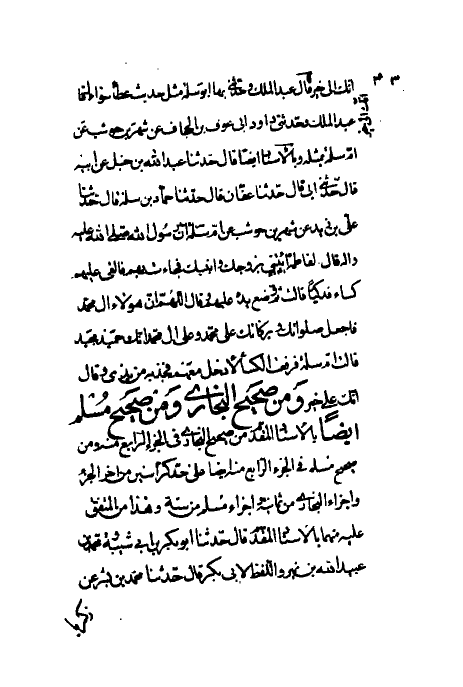 ٤٣
انك الى خير قال عبد الملك وحدثني بها ابو سلمة مثل حديث عطا سواء
عبد الملك وحدثني داود ابي عوف بن الجحاف عن شهر بن حوشب عن
ام سلمة بمثله وبالاسناد ايضا قال حدثنا عبد الله بن حنبل عن ابيه
قال حدثني ابي قال حدثنا عفان قال حدثنا حماد بن سلمة قال حدثنا
على بن زيد عن شهر بن حوشب عن ام سلمة ان رسول الله صلى الله عليه
واله قال لفاطمة ائتيني بزوجك وابنيك فجاءت بهم فالقى عليهم
كساء فدكيا قالت ثم وضع يده عليهم وقال اللهم ان هؤلاء ال محمد
فاجعل صلواتك وبركاتك على محمد وعلى ال محمد انك حميد مجيد
قالت ام سلمة فرفعت الكساء لادخل معهم فجذبه من يدى وقال
انك على خير ومن صحيح البخاري ومن صحيح مسلم
ايضا بالاسناد المقدم من صحيح البخاري في الجزء الرابع منه ومن
صحيح مسلم في الجزء الرابع منه ايضا على حد كراسين من اخر الجزء
واجزاء البخاري من ثمانية اجزاء مسلم من ستة وهذا من المتفق
عليه منهما بالاسناد المقدم قال حدثنا ابو بكر بن ابي شيبة ومحمد بن
عبد الله بن نمير واللفظ لابى بكر قال حدثنا محمد بن بشر عن
زكريا